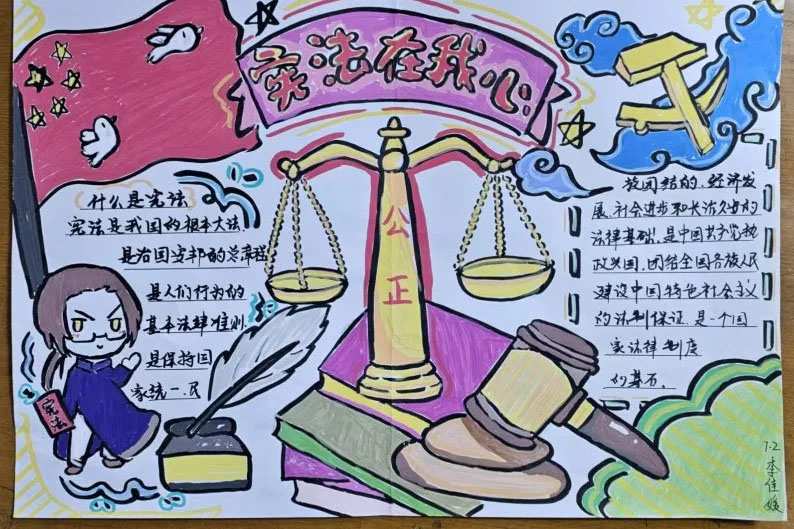 宪法在我心
公正
什么是宪法
宪法是我国的根本大法
是治国安邦的总章程
是人们行为的
基本法律准则.
是保持国
家统一.民
宪法
族团结的.经济发
展.社会进步和长治久安的
法律基础.是中国共产党执
政兴国.团结全国各族人民
建设中国特色社会主义
的法制保证.是一个国
家法律制度
的基石.
7.2
李佳媛